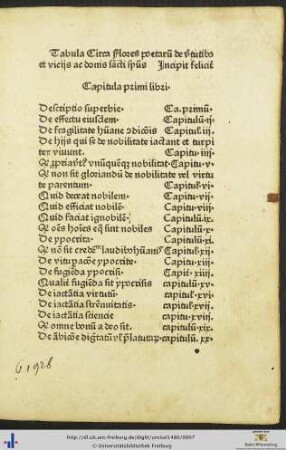 Tabula Circa Flores poetarū de v̄tutibꝯ
et vicijs ac donis sācti spūs Incipit feliciť
Capitula primi libri·
Descriptio superbie· Ca. primū·
De effectu eiusdem· Capitulū·ij·
De fragilitate hūane ɔdicōis Capitul̄·iij·
De hijs qui se de nobilitate iactant et turpi
ter viuunt· Capitu·iiij·
nobilitat·Capitu·v·
non sit gloriandū de nobilitate vel virtu
te parentum· Capitul̄·vi·
Quid deceat nobilem· Capitul̄·vij·
Quid efficiat nobilē· Capitul̄·viij·
Quid faciat ignobilē· Capitulū·ix·
oēs hoīes eq̄ sint nobiles Capitulū·x·
De ypocrita· Capitulū·xi·
nō sit Capitul̄·xij·
De ypocrite· Capitu·xiij·
De fugiēda ypocrisi· Capit̄·xiiij·
Qualit̄ fugiēda sit ypocrisis capitulū·xv·
De iactātia virtutū· capitul̄·xvi·
De iactātia strēnuitatis· capitu·xvij·
De iactātia sciencie capitu·xviij·
omne bonū a deo sit· capitulū·xix·
De capitulū·xx·
http://dl.ub.uni-freiburg.de/diglit/
© Universitätsbibliothek Freiburg